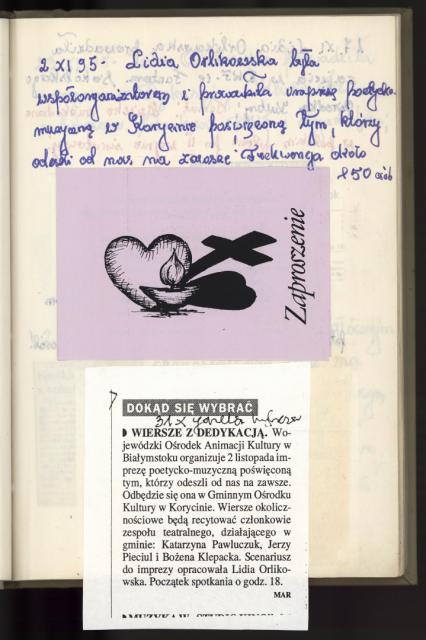 2 XI 95 - Lidia Orlikowska była
współorganizatorem i prowadziła imprezę poetycko
muzyaną w Korycinie poświęconą tym, którzy
odeszli od nas na zawsze! Frekwencja około
250 osób
Zaproszenie
DOKĄD SIĘ WYBRAĆ
31 X
WIERSZE Z DEDYKACJĄ. Wo-
jewódzki Ośrodek Animacji Kultury w
Białymstoku organizuje 2 listopada im-
prezę poetycko-muzyczną poświęconą
tym, którzy odeszli od nas na zawsze.
Odbędzie się ona w Gminnym Ośrodku
Kultury w Korycinie. Wiersze okolicz-
nościowe będą recytować członkowie
zespołu teatralnego, działającego w
gminie: Katarzyna Pawluczuk, Jerzy
Pieciul i Bożena Klepacka. Scenariusz
do imprezy opracowała Lidia Orliko-
wska. Początek spotkania o godz. 18.
MAR